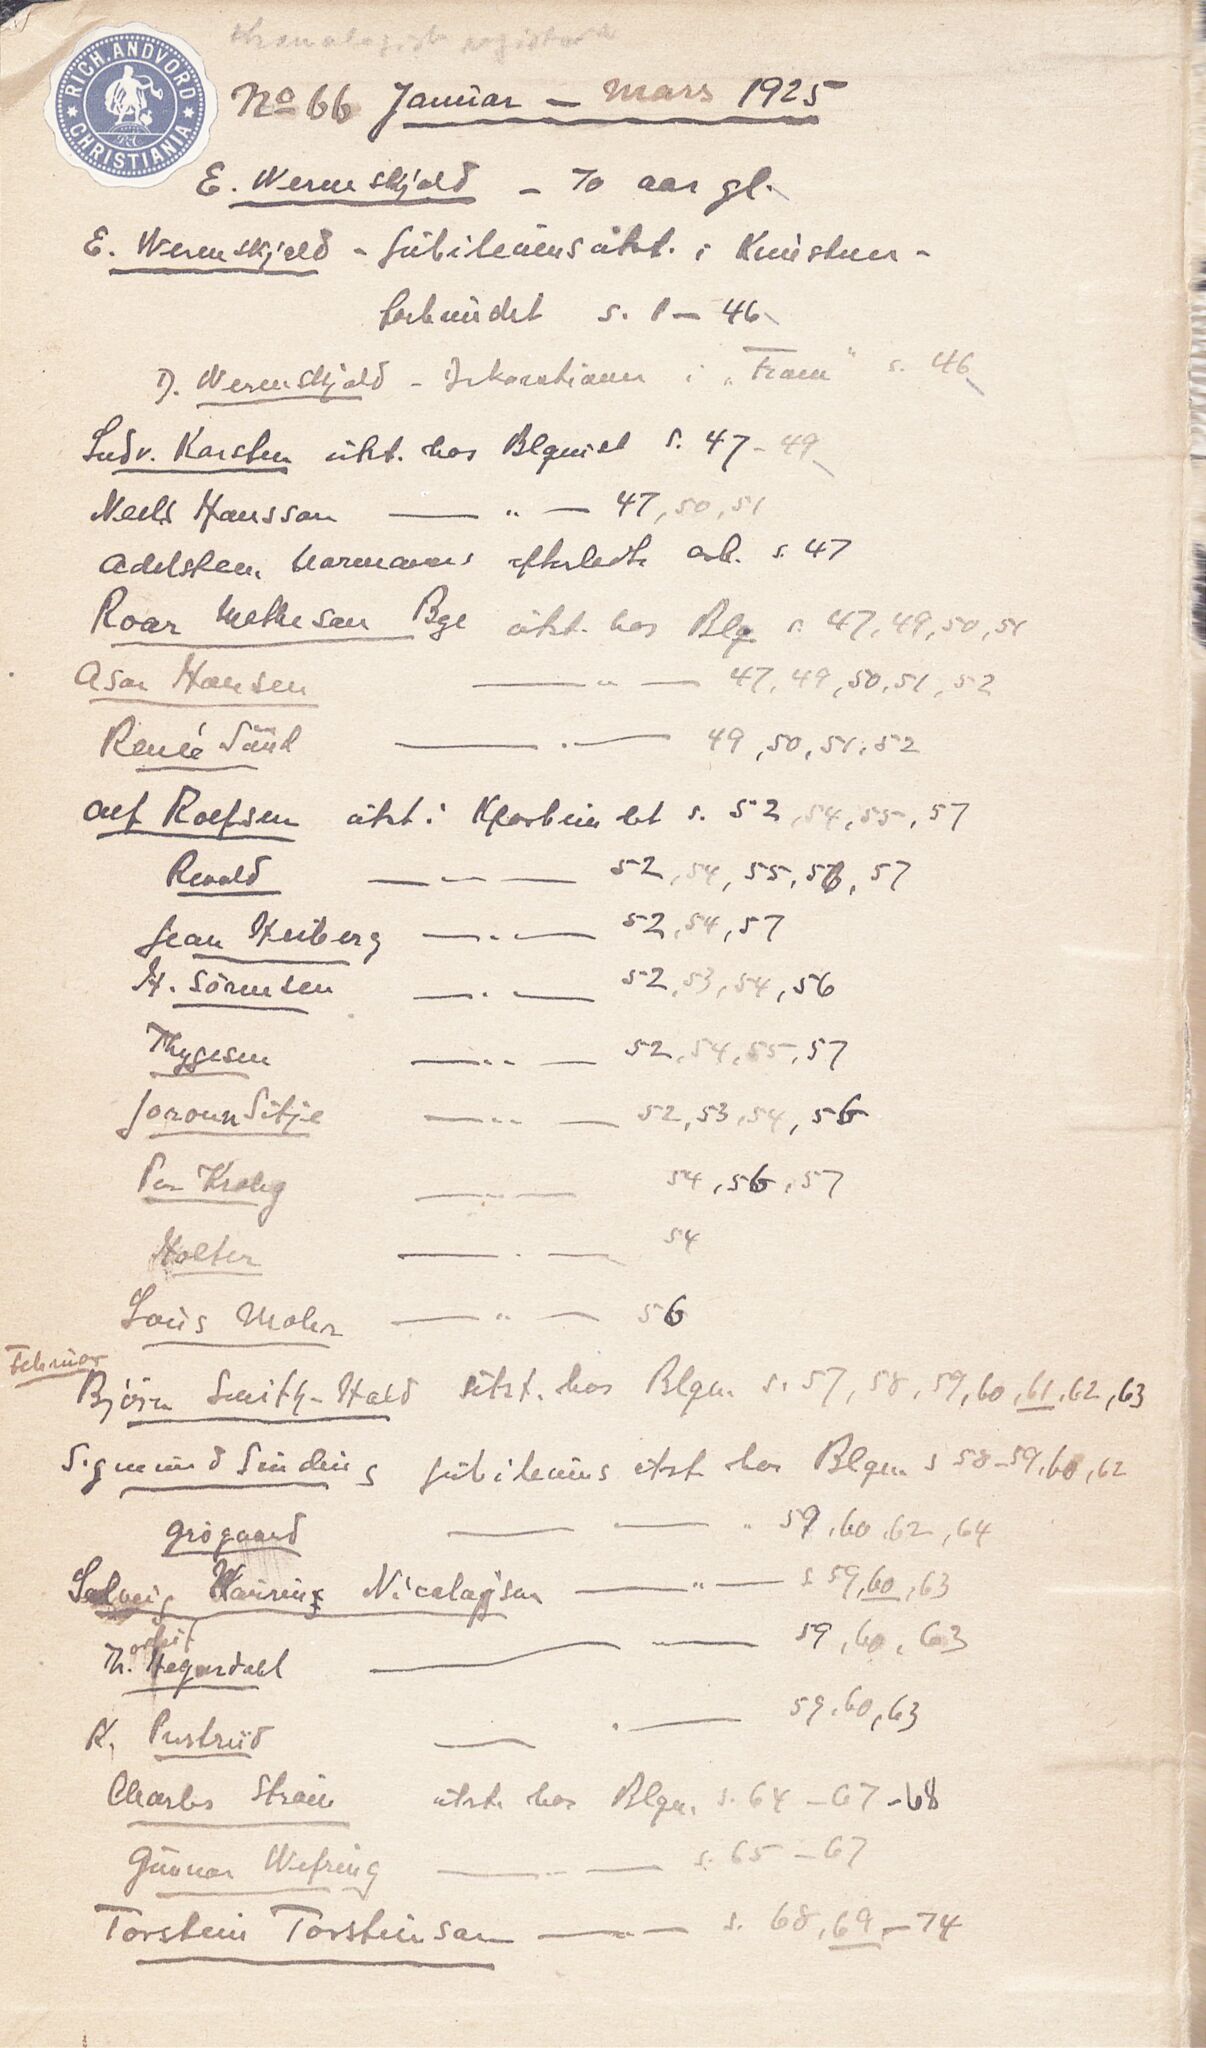 Kronologisk register
RICH. ANDVORD
CHRISTIANIA
No 66 Januar - Mars 1925
E. Werenskjold - 70 aar gl.
E. Werenskjold - Jubileumsutst. i Kunstner-
forbundet s. 1 - 46
D. Werenskjold - Dekorationer i "Fram" s. 46
Ludv. Karsten utst. hos Blquist s. 47 - 49
Hansson — " — 47, 50, 51
Adelsteen Normanns efterladte arb. s. 47
Roar Matheson Bye utst. hos Blq s. 47, 49, 50, 51
Hansen — " — 47, 49, 50, 51, 52
Reneé — " — 49, 50, 51, 52
Alf Rolfsen utst i Kforbundet s. 52, 54, 55, 57
Revold — " — 52, 54, 55, 56, 57
Jean Heiberg — " — 52, 54, 57
H. Sörensen — " — 52, 53, 54, 56
Thygesen — " — 52, 54, 55, 57
Joronn Sitje — " — 52, 53, 54, 56
Per Krohg — " — 54, 56, 57
Holter — " — 54
Louis Mohr — " — 56
Februar
Björn Smith-Hald utst. hos Blqu. s. 57, 58, 59, 60, 61, 62, 63
Sigmund Sinding jubileums utst hos Blqu. s 58-59, 60, 62
Grögaard — " — 59, 60, 62, 64
Nicolaysen — " — s 59, 60, 63
Th. Hagerdahl — — 59, 60, 63
K. Pustrud — " — 59, 60, 63
Charles utst. hos Blqu. s. 64 - 67 - 68
Gunnar Wefring — " — s. 65 - 67
Torstein Torsteinson — " — s. 68, 69 - 74